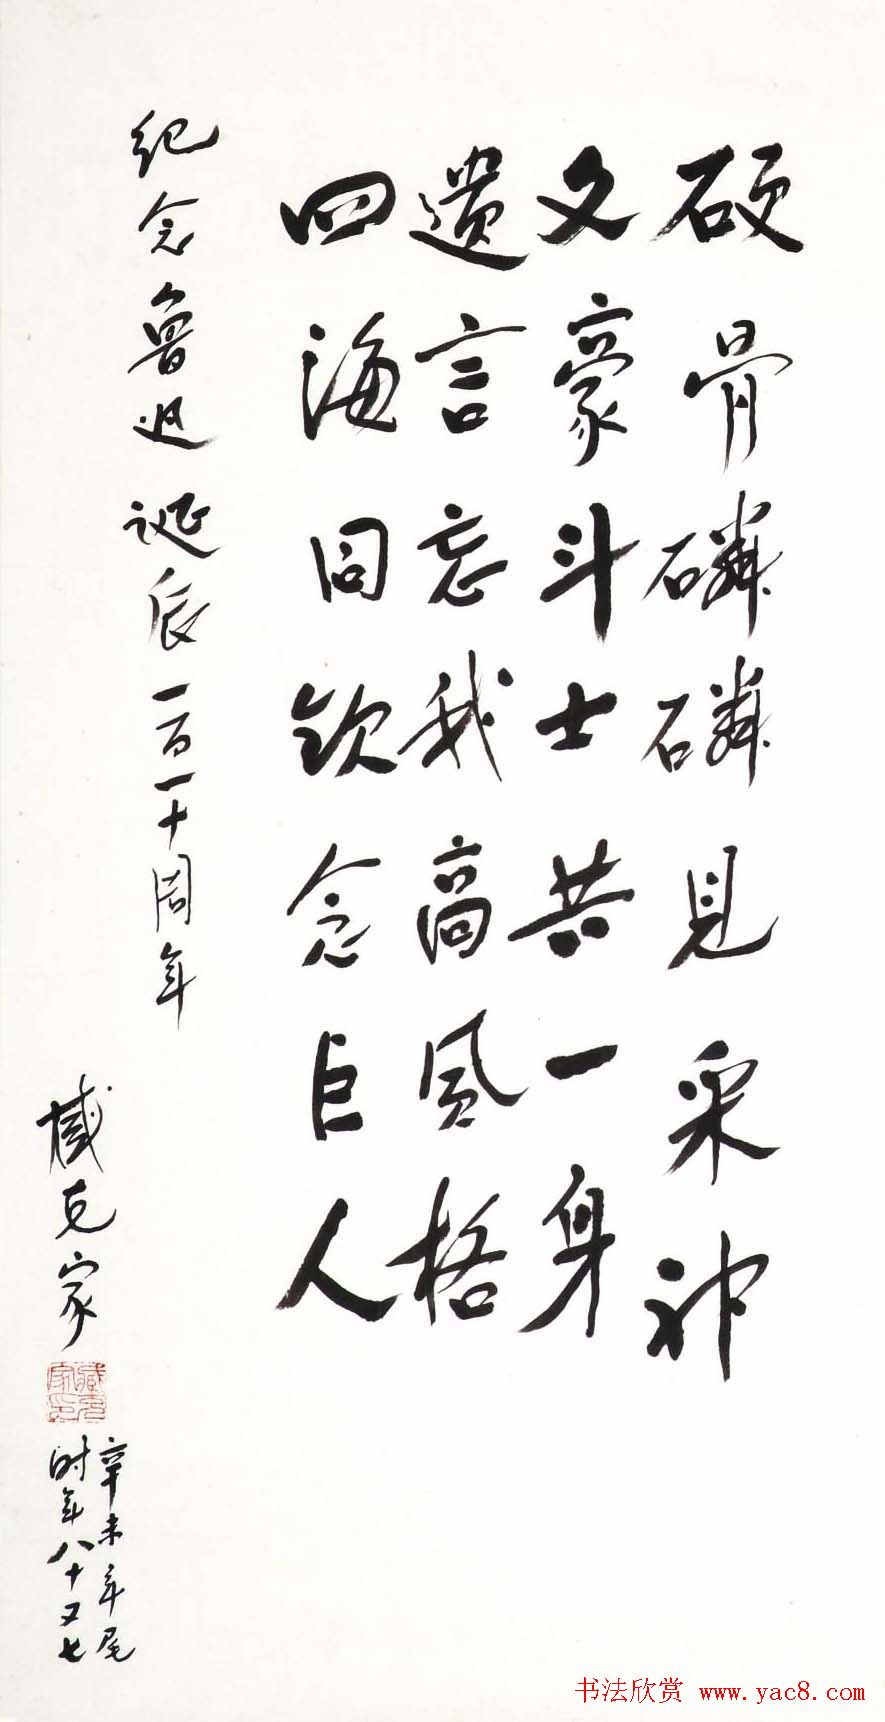 硬骨磷磷見采神
文豪斗士共一身
遗言忘我高风格
四海同钦念巨人
纪念鲁迅诞辰一百一十周年
臧克家
辛未年尾
时年八十又七
臧克家印
书法欣赏 www.yac8.com